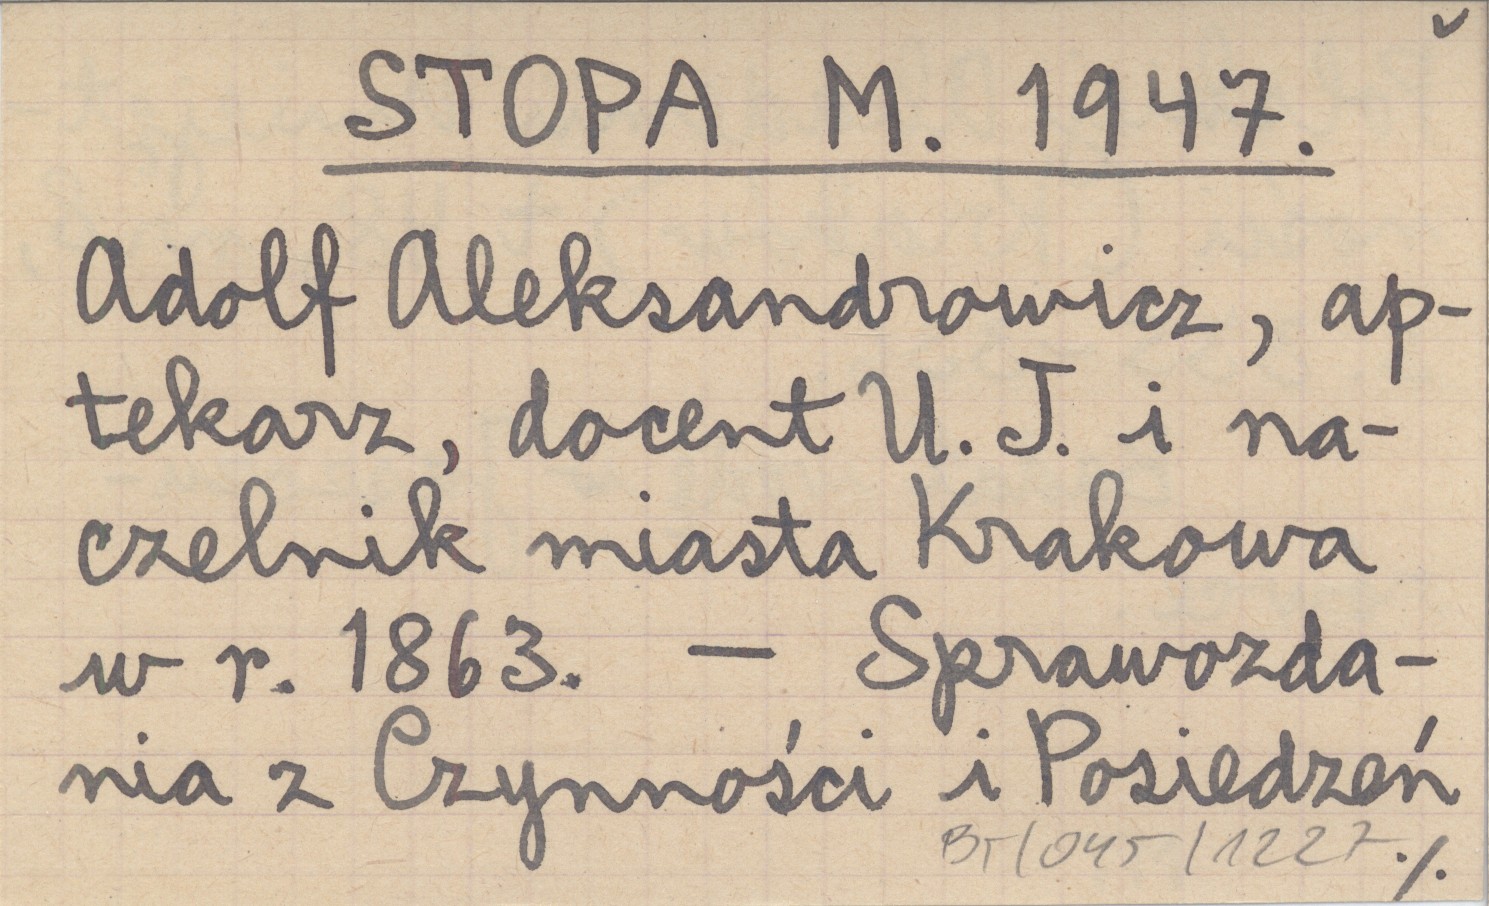 STOPA M. 1947.
Adolf Aleksandrowicz, ap-
tekarz, docent U. J. i na-
czelnik miasta Krakowa
w r. 1863. — Sprawozda-
nia z Czynności i Posiedzeń
BT/045/1227 ./.